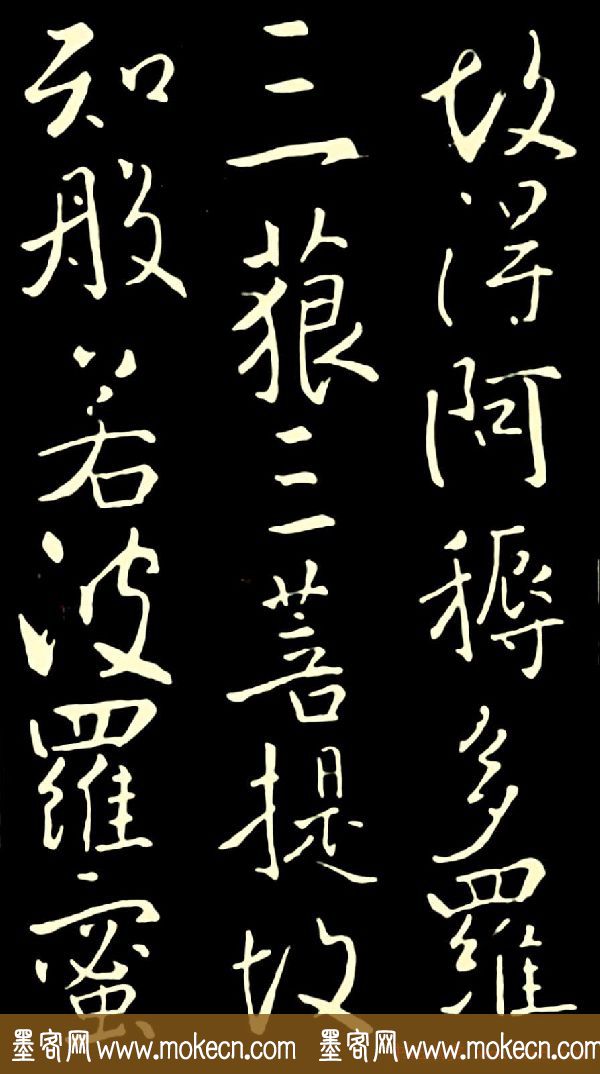 故得阿耨多羅
三藐三菩提故
知般若波羅蜜
墨客网 www.mokecn.com 墨客网 www.mokecn.com